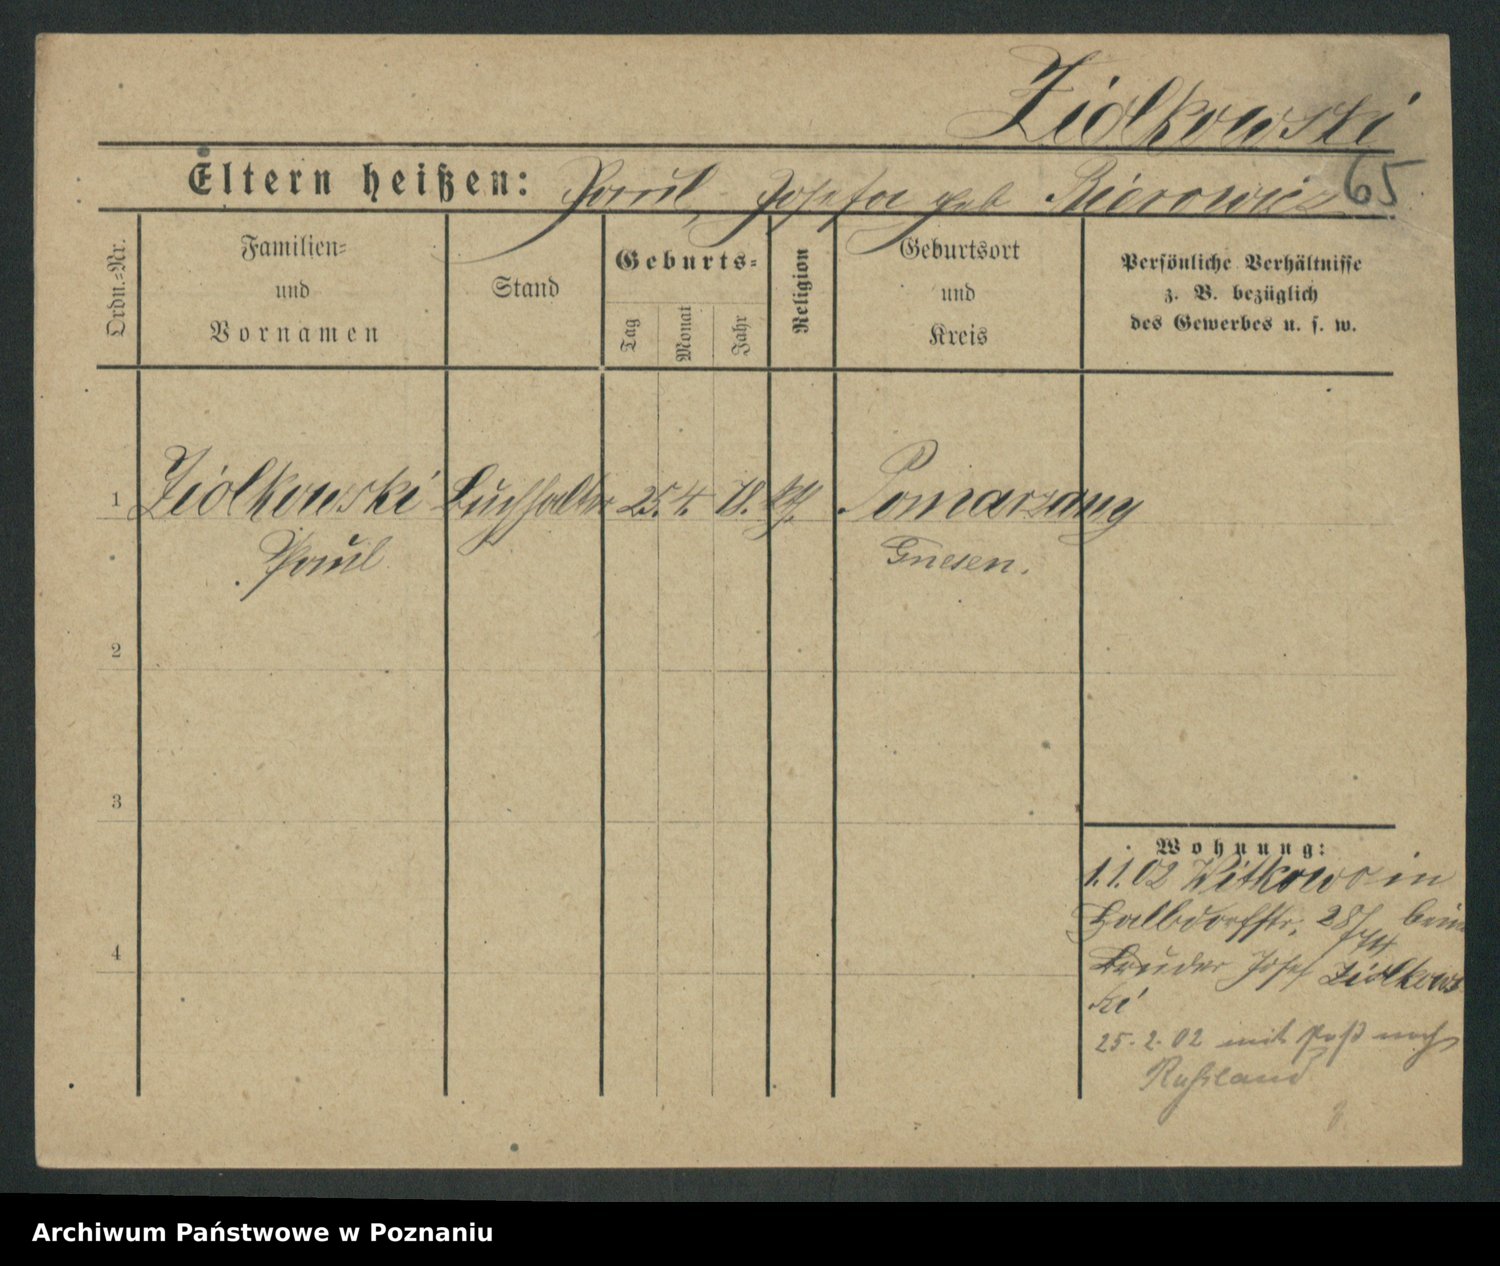 Ziolkowski
65
Eltern heißen: Paul, Josefa geb
Ordn.-Nr.
Familien-
und
Vornamen
Stand
Geburts-
Tag
Monat
Jahr
Religion
Geburtsort
und
Kreis
Persönliche Verhältnisse
z. B. bezüglich
des Gewerbes u. s. w.
1 Ziolkowski Buchhalter 25. 4. 78. kth. Pomarzany
Paul Gnesen.
2
3
4
Wohnung:
1.1.02 Witkowo in
Halbdorfstr. 28/ beim
Bruder Josef Ziolkows
ki
25.2.02 mit Paß nach
Russland
Archiwum Państwowe w Poznaniu